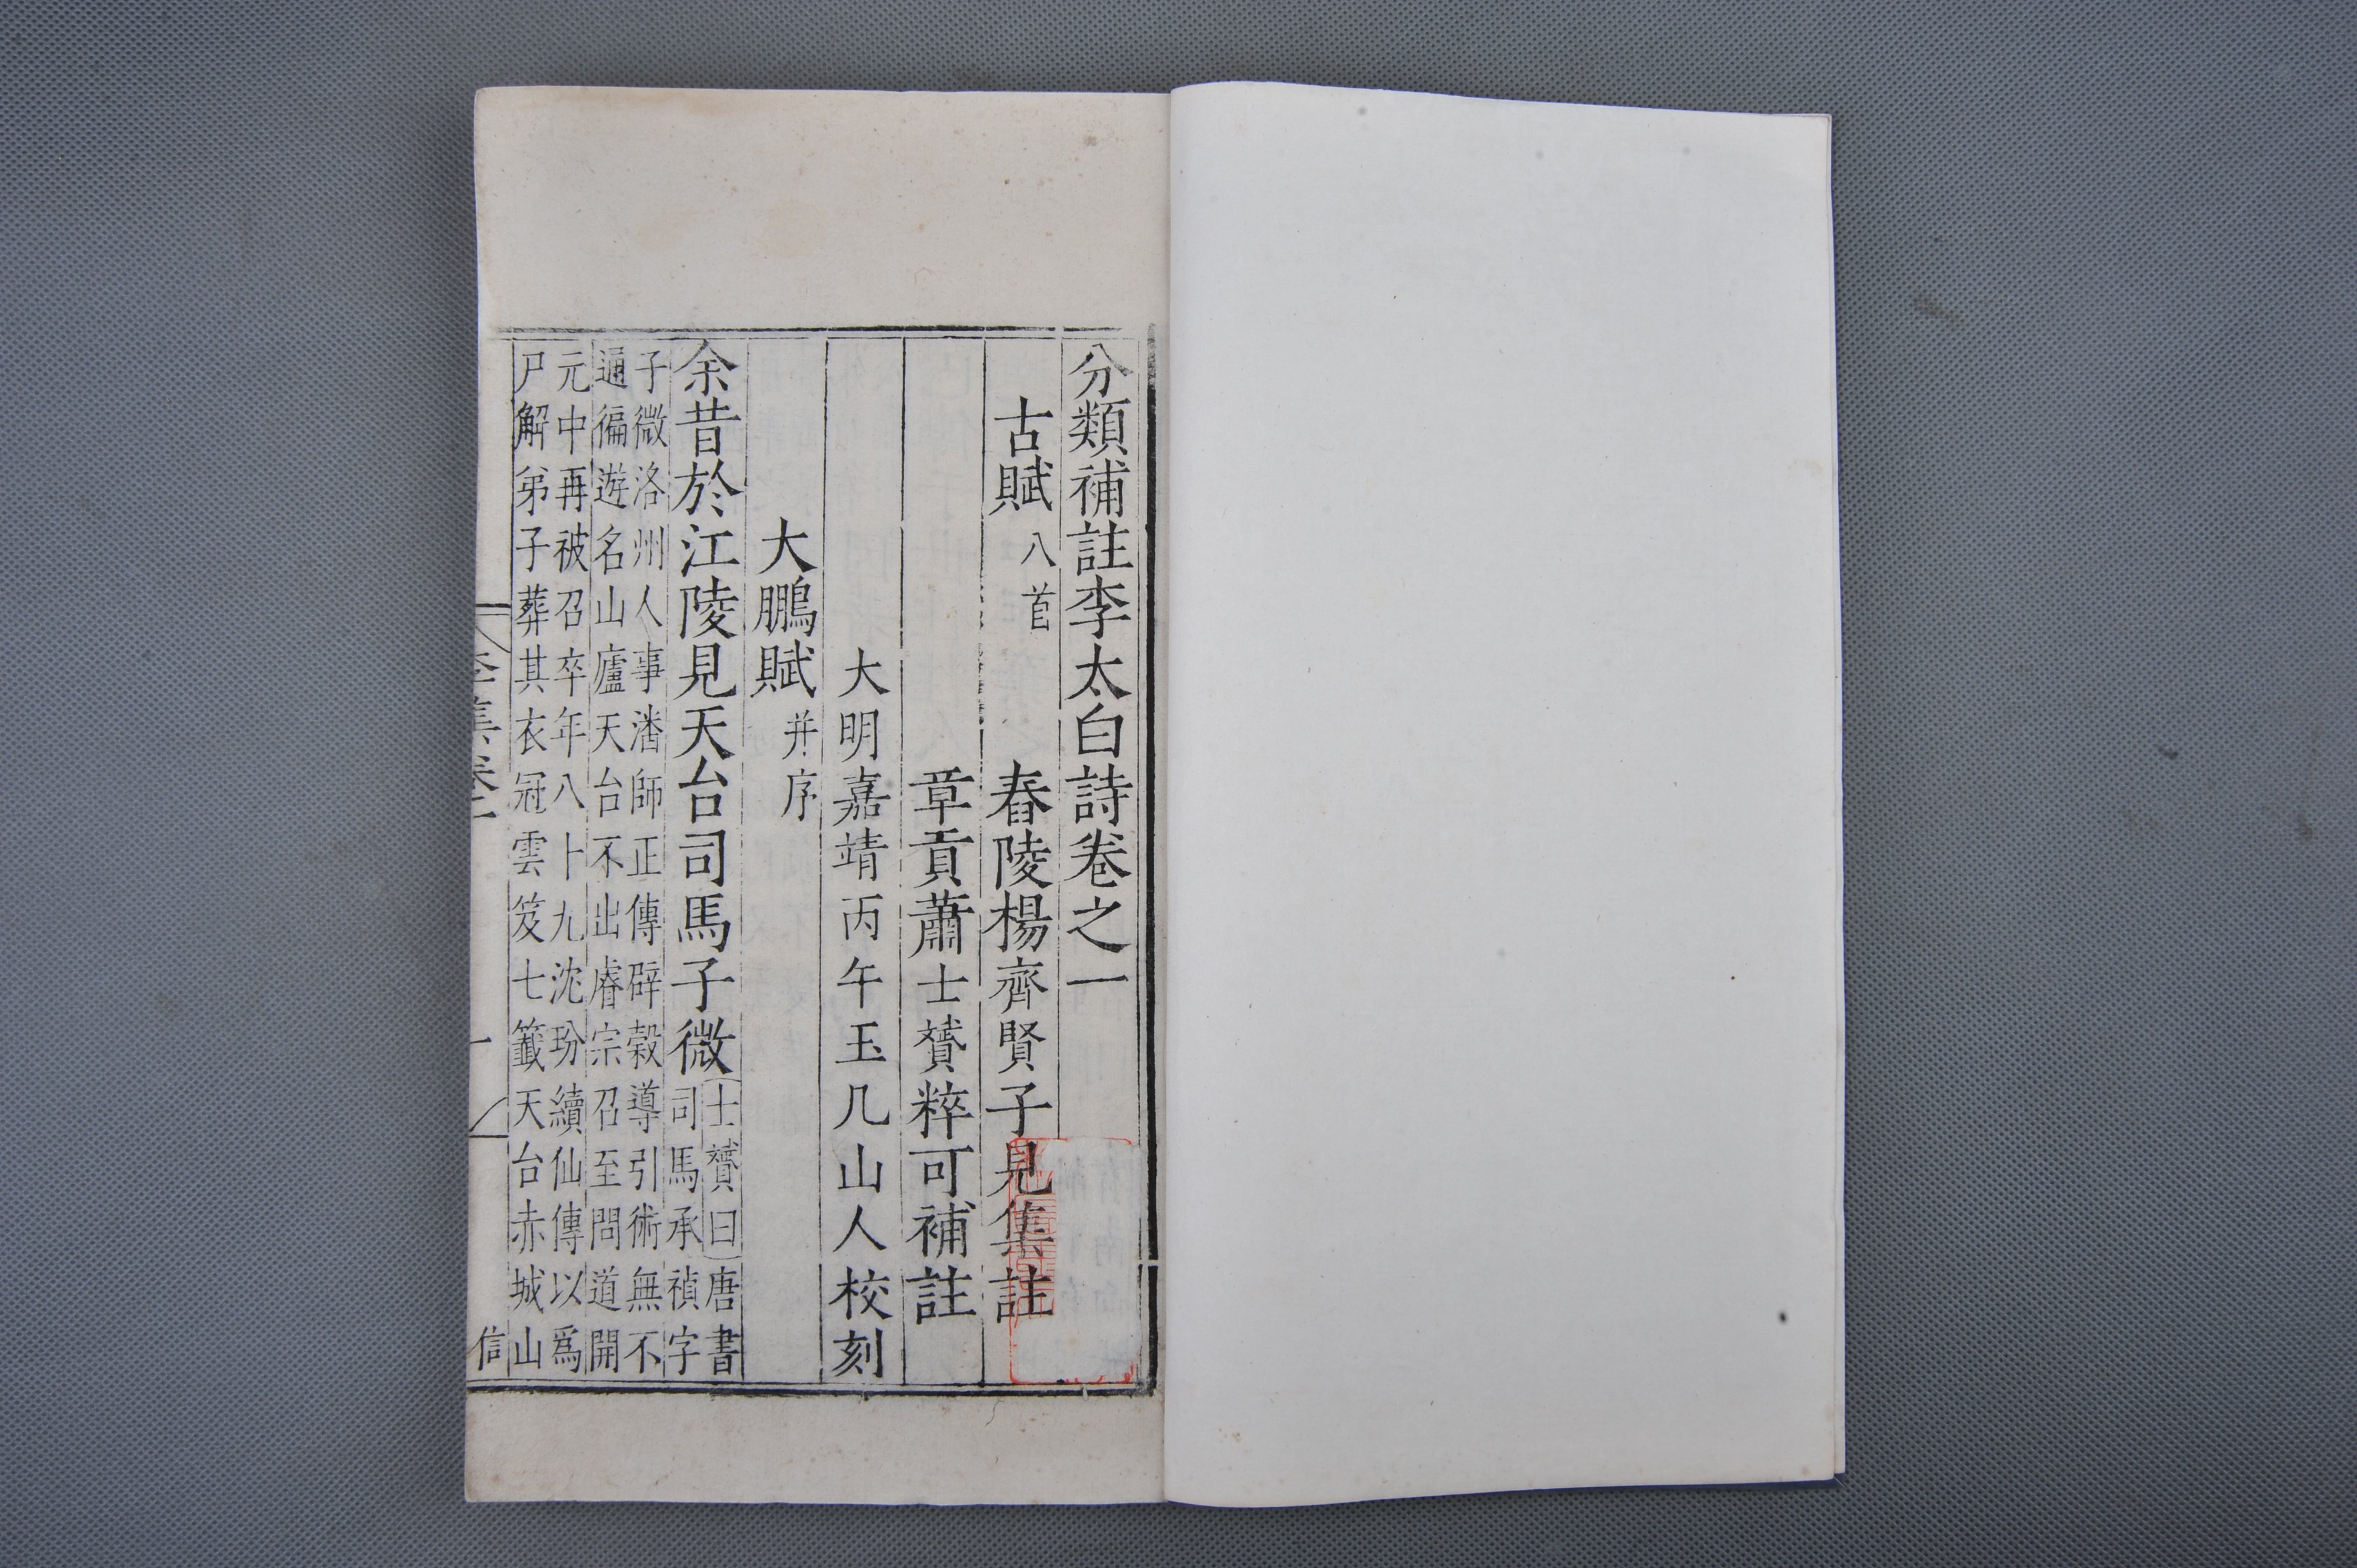 分類補註李太白詩卷之一
古賦八首 舂陵楊齊賢子見集註
章貢蕭士贇粹可補註
大明嘉靖丙午玉几山人校刻
大鵬賦并序
余昔於江陵見天台司馬子微士贇曰唐書
司馬承禎字
子微洛州人事潘師正傳辟穀導引術無不
通徧遊名山廬天台不出睿宗召至問道開
元中再被召卒年八十九沈玢續仙傳以爲
尸解弟子葬其衣冠雲笈七籤天台赤城山
李集卷一
一
信